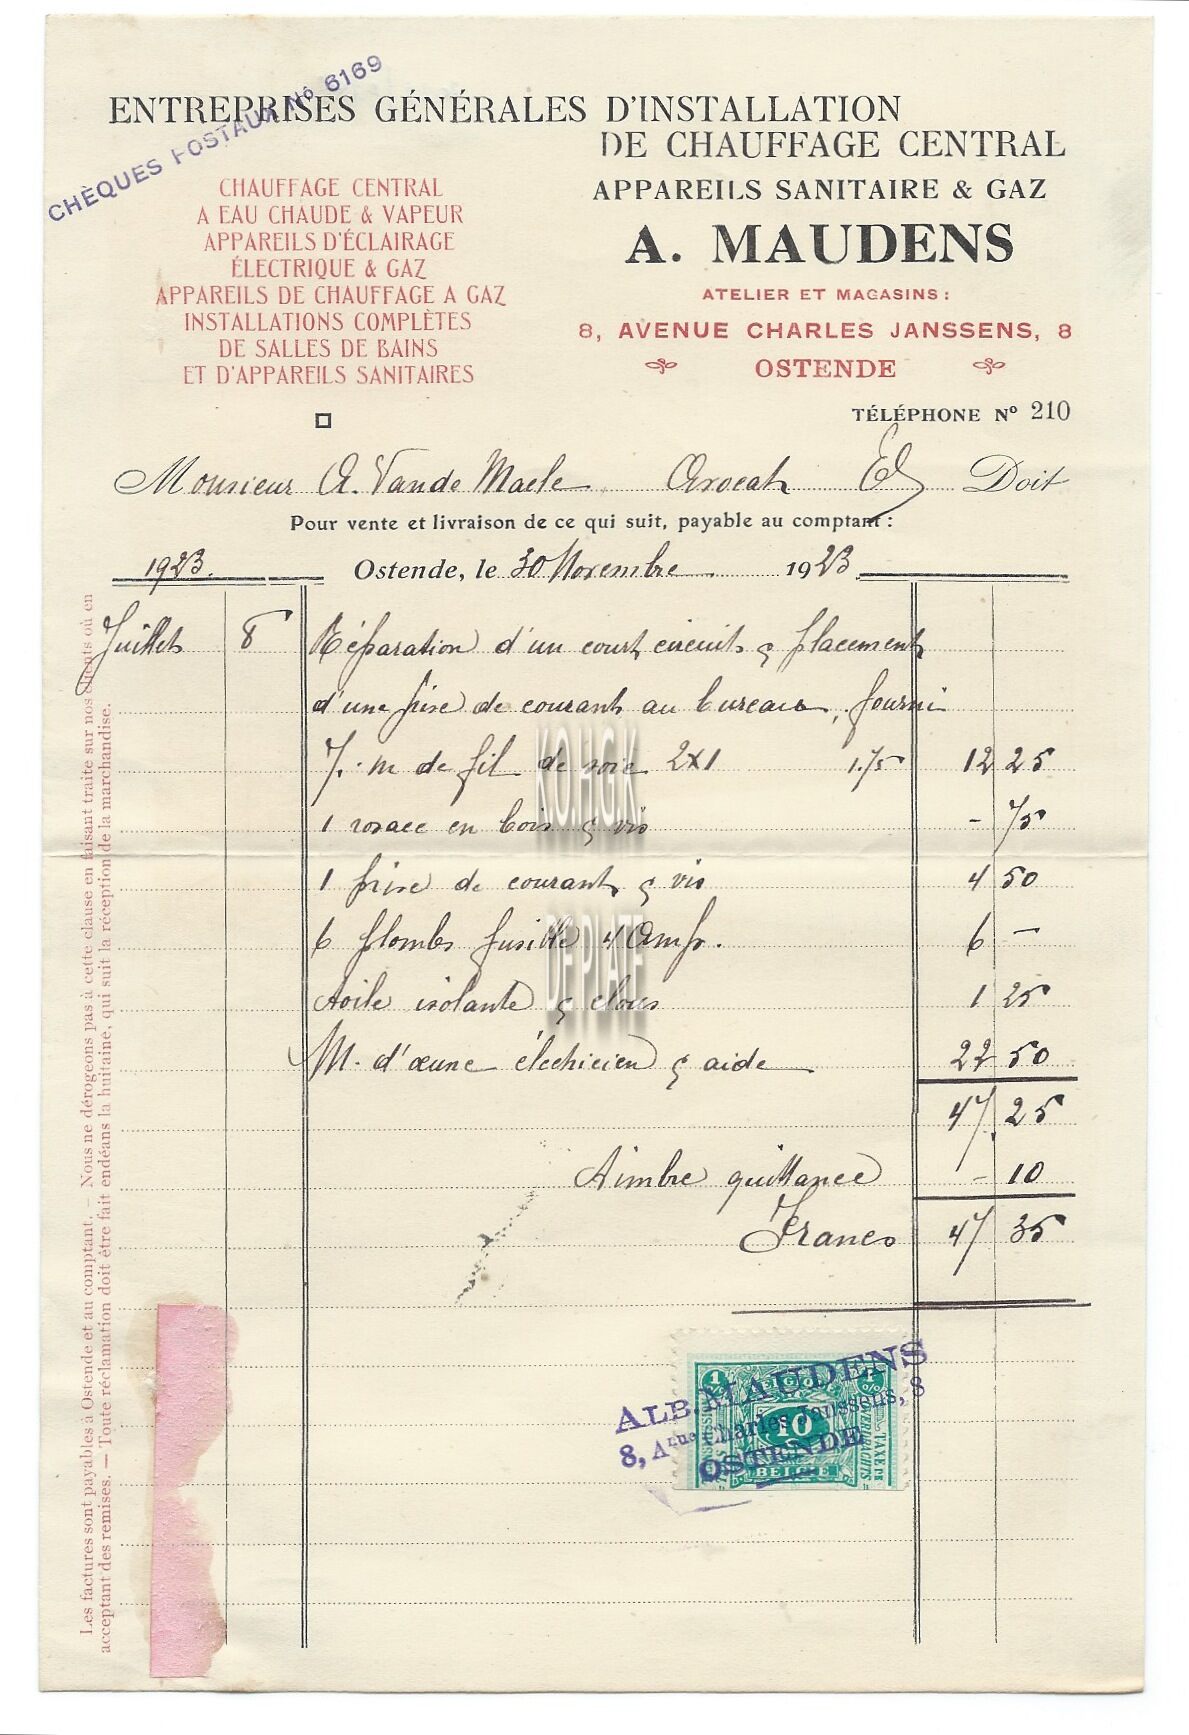 CHÈQUES POSTAUX Nº 6169
ENTREPRISES GÉNÉRALES D'INSTALLATION
DE CHAUFFAGE CENTRAL
APPAREILS SANITAIRE & GAZ
A. MAUDENS
ATELIER ET MAGASINS :
8, AVENUE CHARLES JANSSENS, 8
OSTENDE
TÉLÉPHONE Nº 210
CHAUFFAGE CENTRAL
A EAU CHAUDE & VAPEUR
APPAREILS D'ÉCLAIRAGE
ÉLECTRIQUE & GAZ
APPAREILS DE CHAUFFAGE A GAZ
INSTALLATIONS COMPLÈTES
DE SALLES DE BAINS
ET D'APPAREILS SANITAIRES
Monsieur A. Vande Maele Avocat E/V Doit
Pour vente et livraison de ce qui suit, payable au comptant :
1923. Ostende, le 30 Novembre 1923
Juillet 8 Réparation d'un court circuit & placement
d'une prise de courant au bureau, fourni
7. m de fil de soie 2x1 1.75 12 25
1 rosace en bois & vis - 75
1 prise de courant & vis 4 50
6 plombs fusible 4 Amp. 6 -
toile isolante & clous 1 25
M. d'œune électricien & aide 22 50
47. 25
Timbre quittance - 10
Francs 47 35
Les factures sont payables à Ostende et au comptant. — Nous ne dérogeons pas à cette clause en faisant traite sur nos clients où en
acceptant des remises. — Toute réclamation doit être fait endéans la huitaine, qui suit la réception de la marchandise.
KO.H.G.K.
DE PLATE
ALB. MAUDENS
8, Anue Charles Janssens, 8
OSTENDE
10
BELGE
TAXE DE